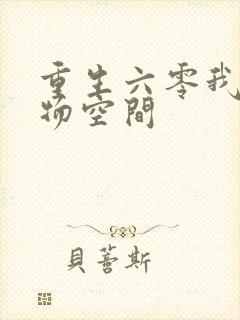 重生六零我
物空間
貝蕾斯